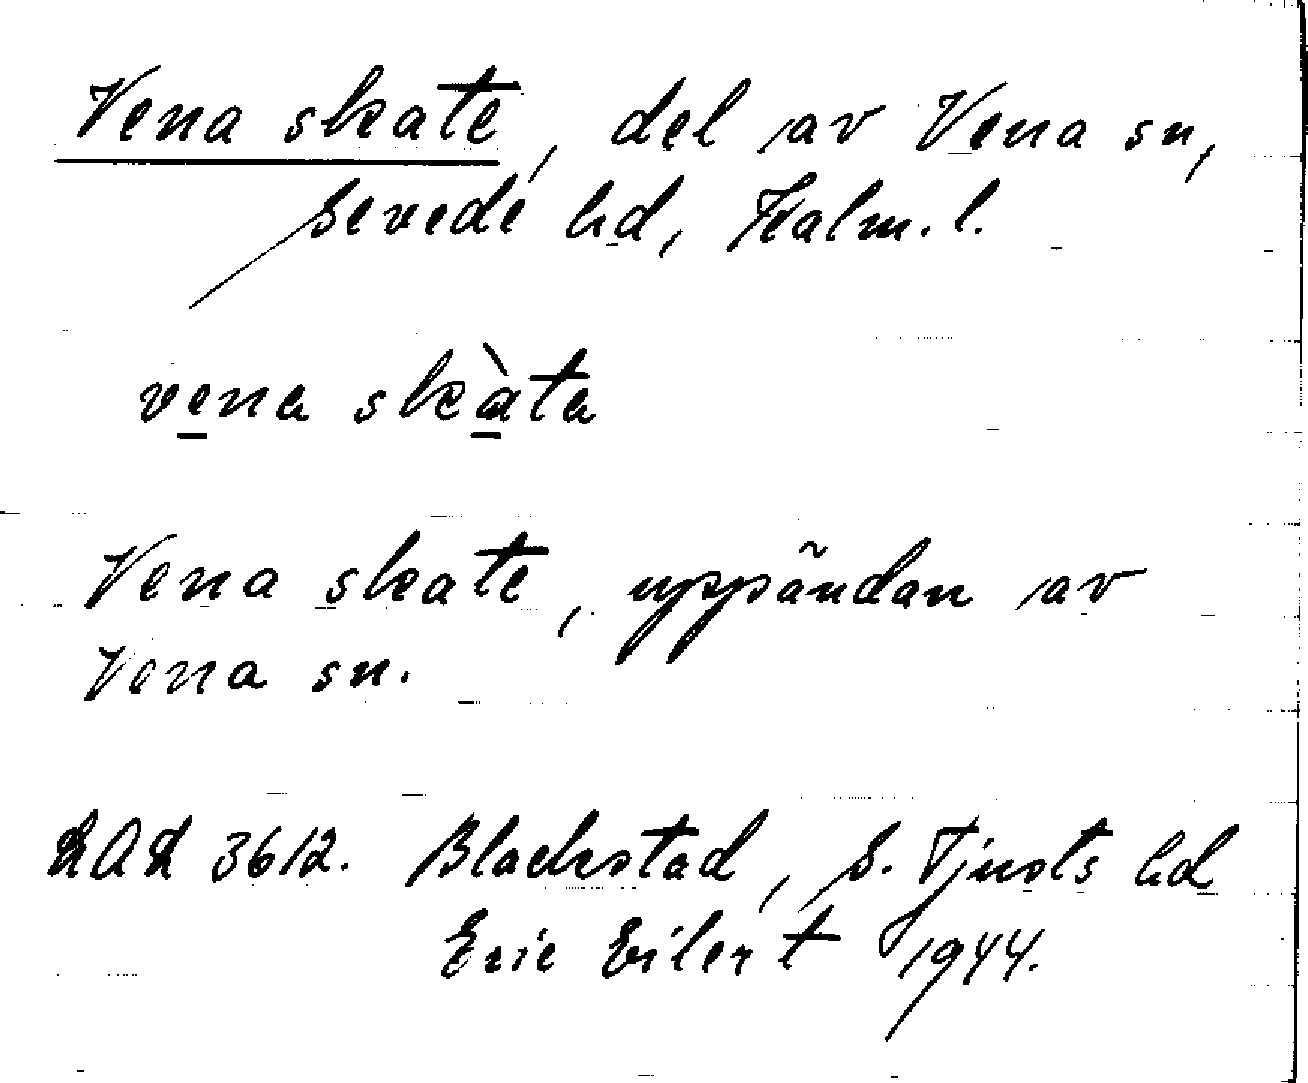 Vena skate, del av Vena sn,
Sevede hd, Kalm. l.
vena skàta
Vena skate, uppändan av
Vena sn.
LAL 3612. Blackstad, S. Tjusts hd
Eric Eilert 1944.